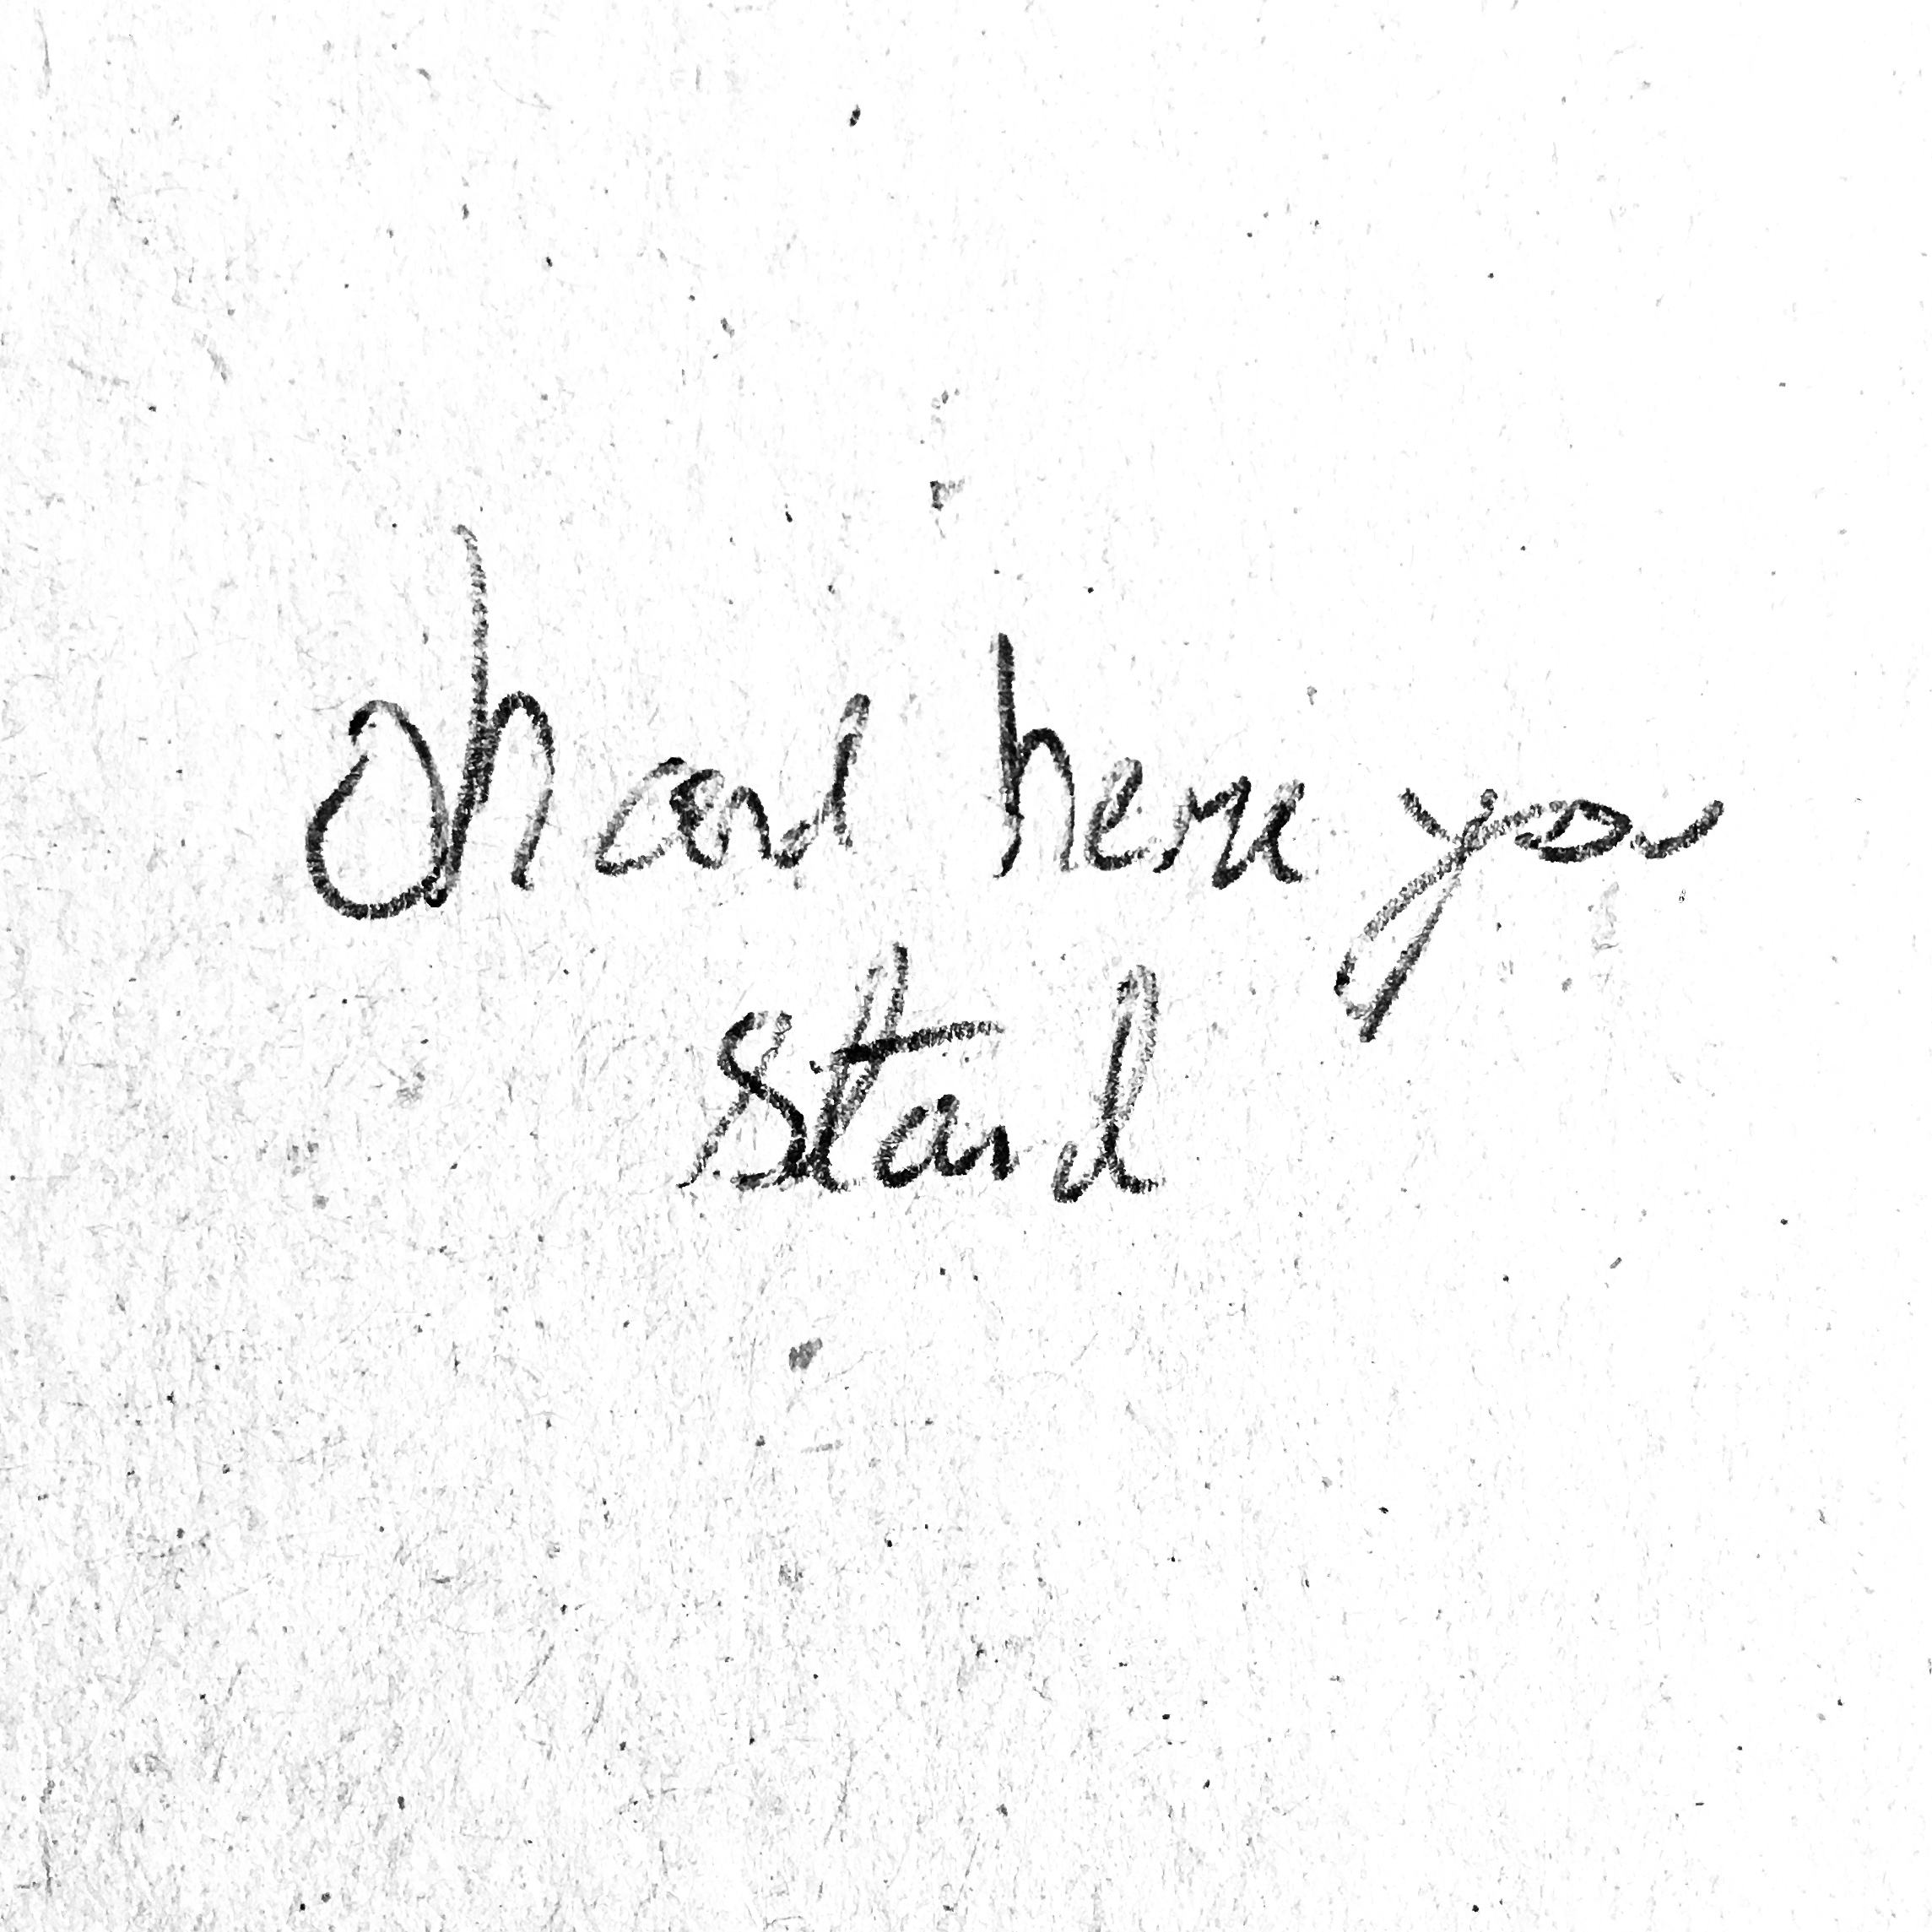 Oh and here you
stand